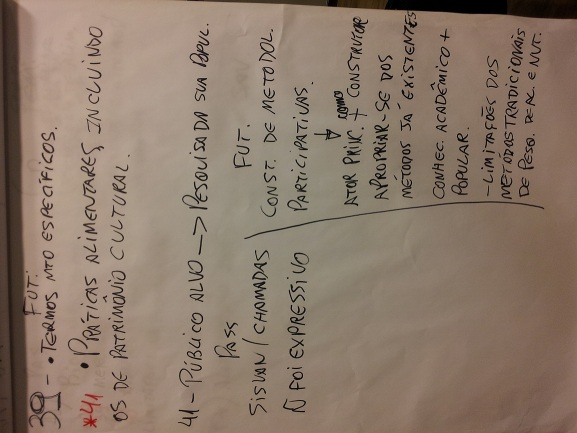 FUT.
39 - • TERMOS MTO ESPECÍFICOS.
*41 • PRÁTICAS ALIMENTARES, INCLUINDO
OS DE PATRIMÔNIO CULTURAL.
41 - PÚBLICO ALVO → PESQUISADA SUA POPUL.
PASS
SISVAN / CHAMADAS
Ñ FOI EXPRESSIVO
FUT.
CONST. DE METODOL.
PARTICIPATIVAS.
COMO
ATOR PRINC. + CONSTRUTOR
APROPRIAR-SE DOS
MÉTODOS JÁ EXISTENTES
CONHEC. ACADÊMICO +
POPULAR.
- LIMITAÇÕES DOS
MÉTODOS TRADICIONAIS
DE PESQ. DE AL. E NUT.